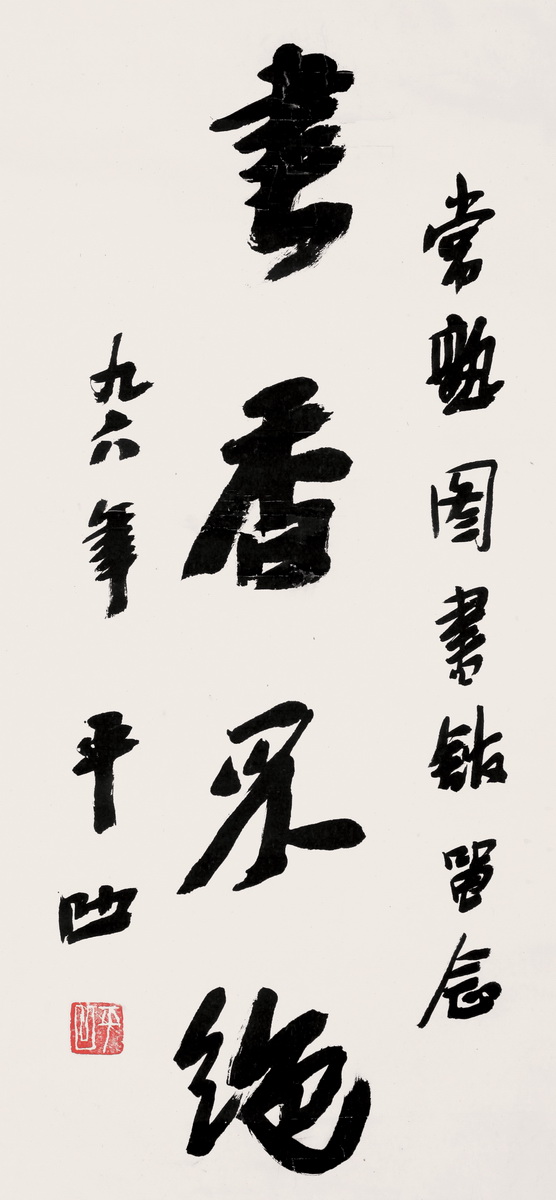 常熟图書館留念
書香絕
九六年 平凹
平凹